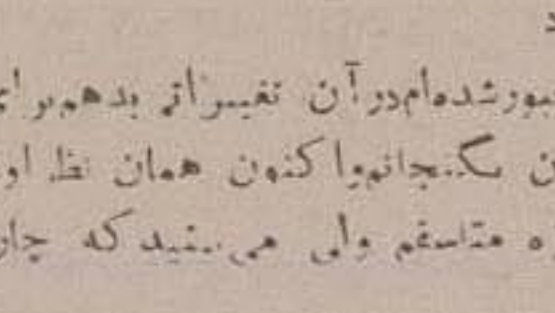 شده‌ام در آن تغییراتی بدهم برای
بگنجانم و اکنون همان نظر او
متاسفم ولی می‌بینید که